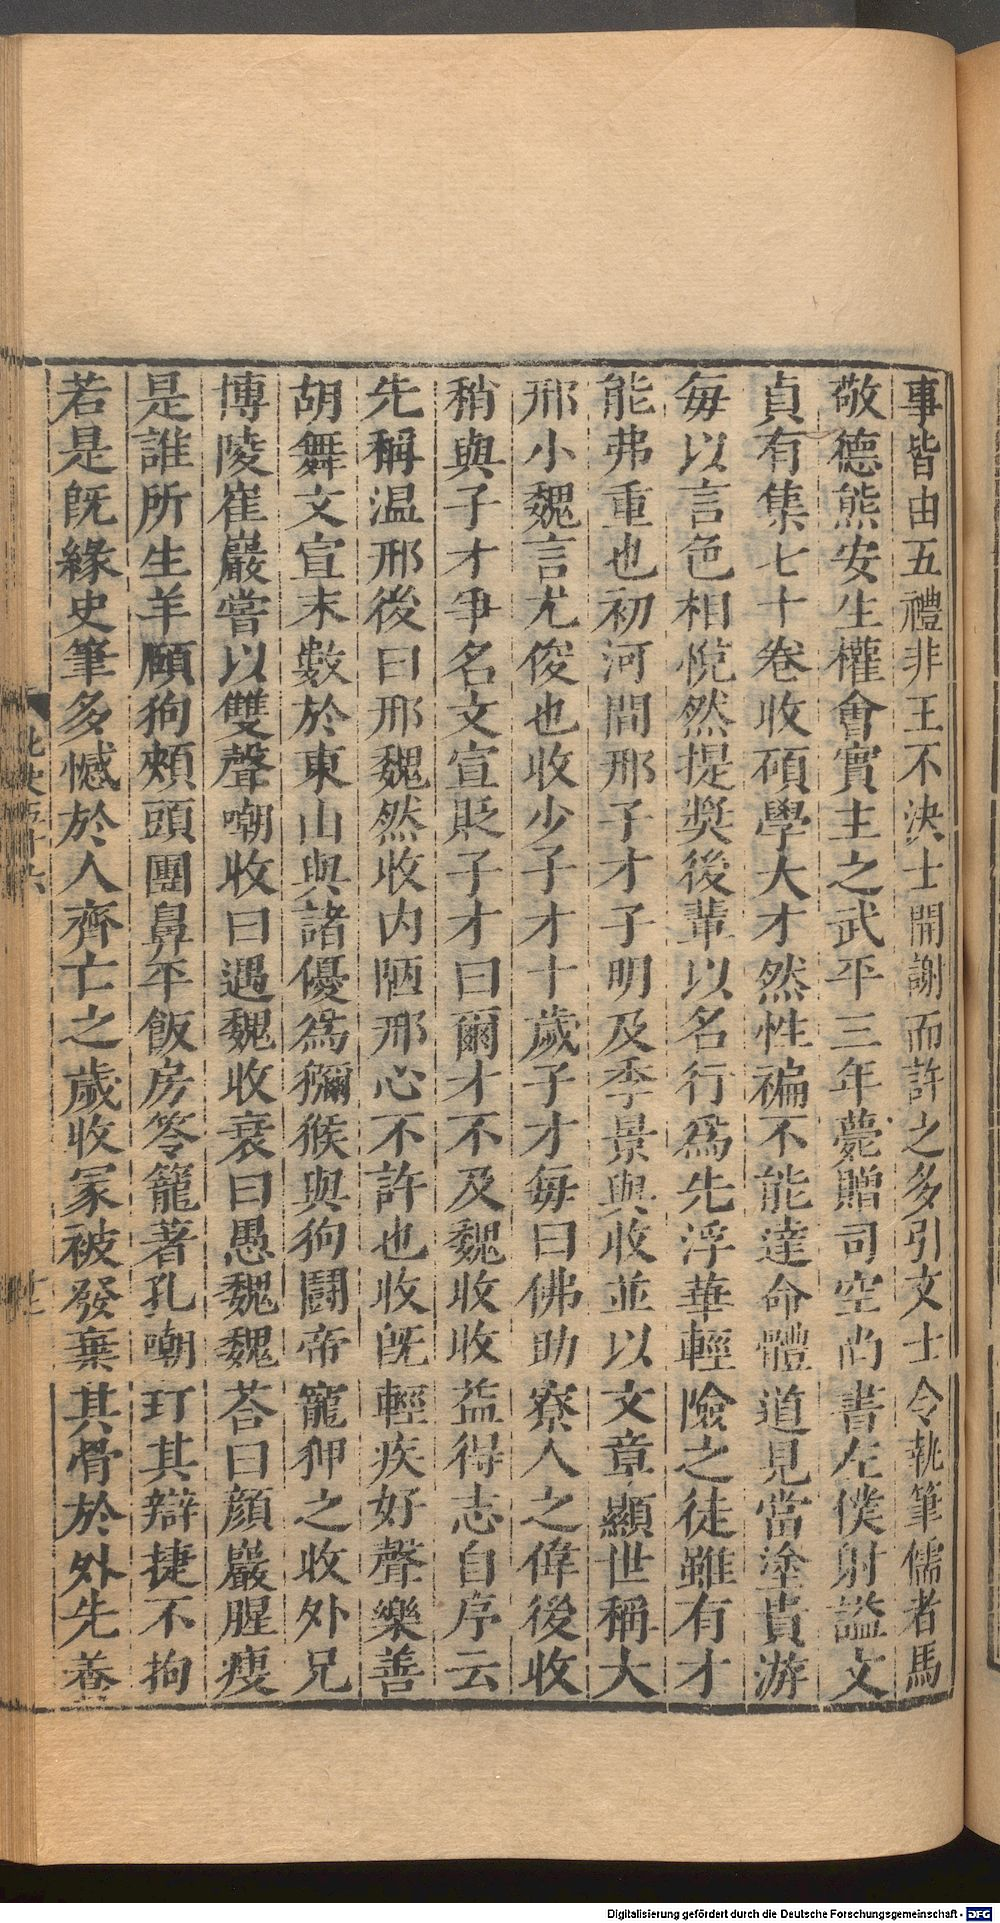 事皆由五禮非王不決士開謝而許之多引文士令執筆儒者馬
敬德熊安生權會實主之武平三年薨贈司空尚書左僕射謚文
貞有集七十卷收碩學大才然性褊不能達命體道見當塗貴游
每以言色相悅然提奨後輩以名行爲先浮華輕險之徒雖有才
能弗重也初河間邢子才子明及季景與收並以文章顯世稱大
邢小魏言尤俊也收少子才十歲子才每曰佛助寮人之偉後收
稍與子才爭名文宣貶子才曰爾才不及魏收收益得志自序云
先稱温邢後曰邢魏然收内陋邢心不許也收旣輕疾好聲樂善
胡舞文宣末數於東山與諸優爲獼猴與狗鬪帝寵狎之收外兄
博陵崔巖嘗以雙聲嘲收曰遇魏收衰曰愚魏魏荅曰顏巖腥瘦
是誰所生羊頤狗頰頭團鼻平飯房笭籠著孔嘲玎其辯捷不拘
若是旣緣史筆多憾於人齊亡之歲收冢被發棄其骨於外先養
Digitalisierung gefördert durch die Deutsche Forschungsgemeinschaft - DFG